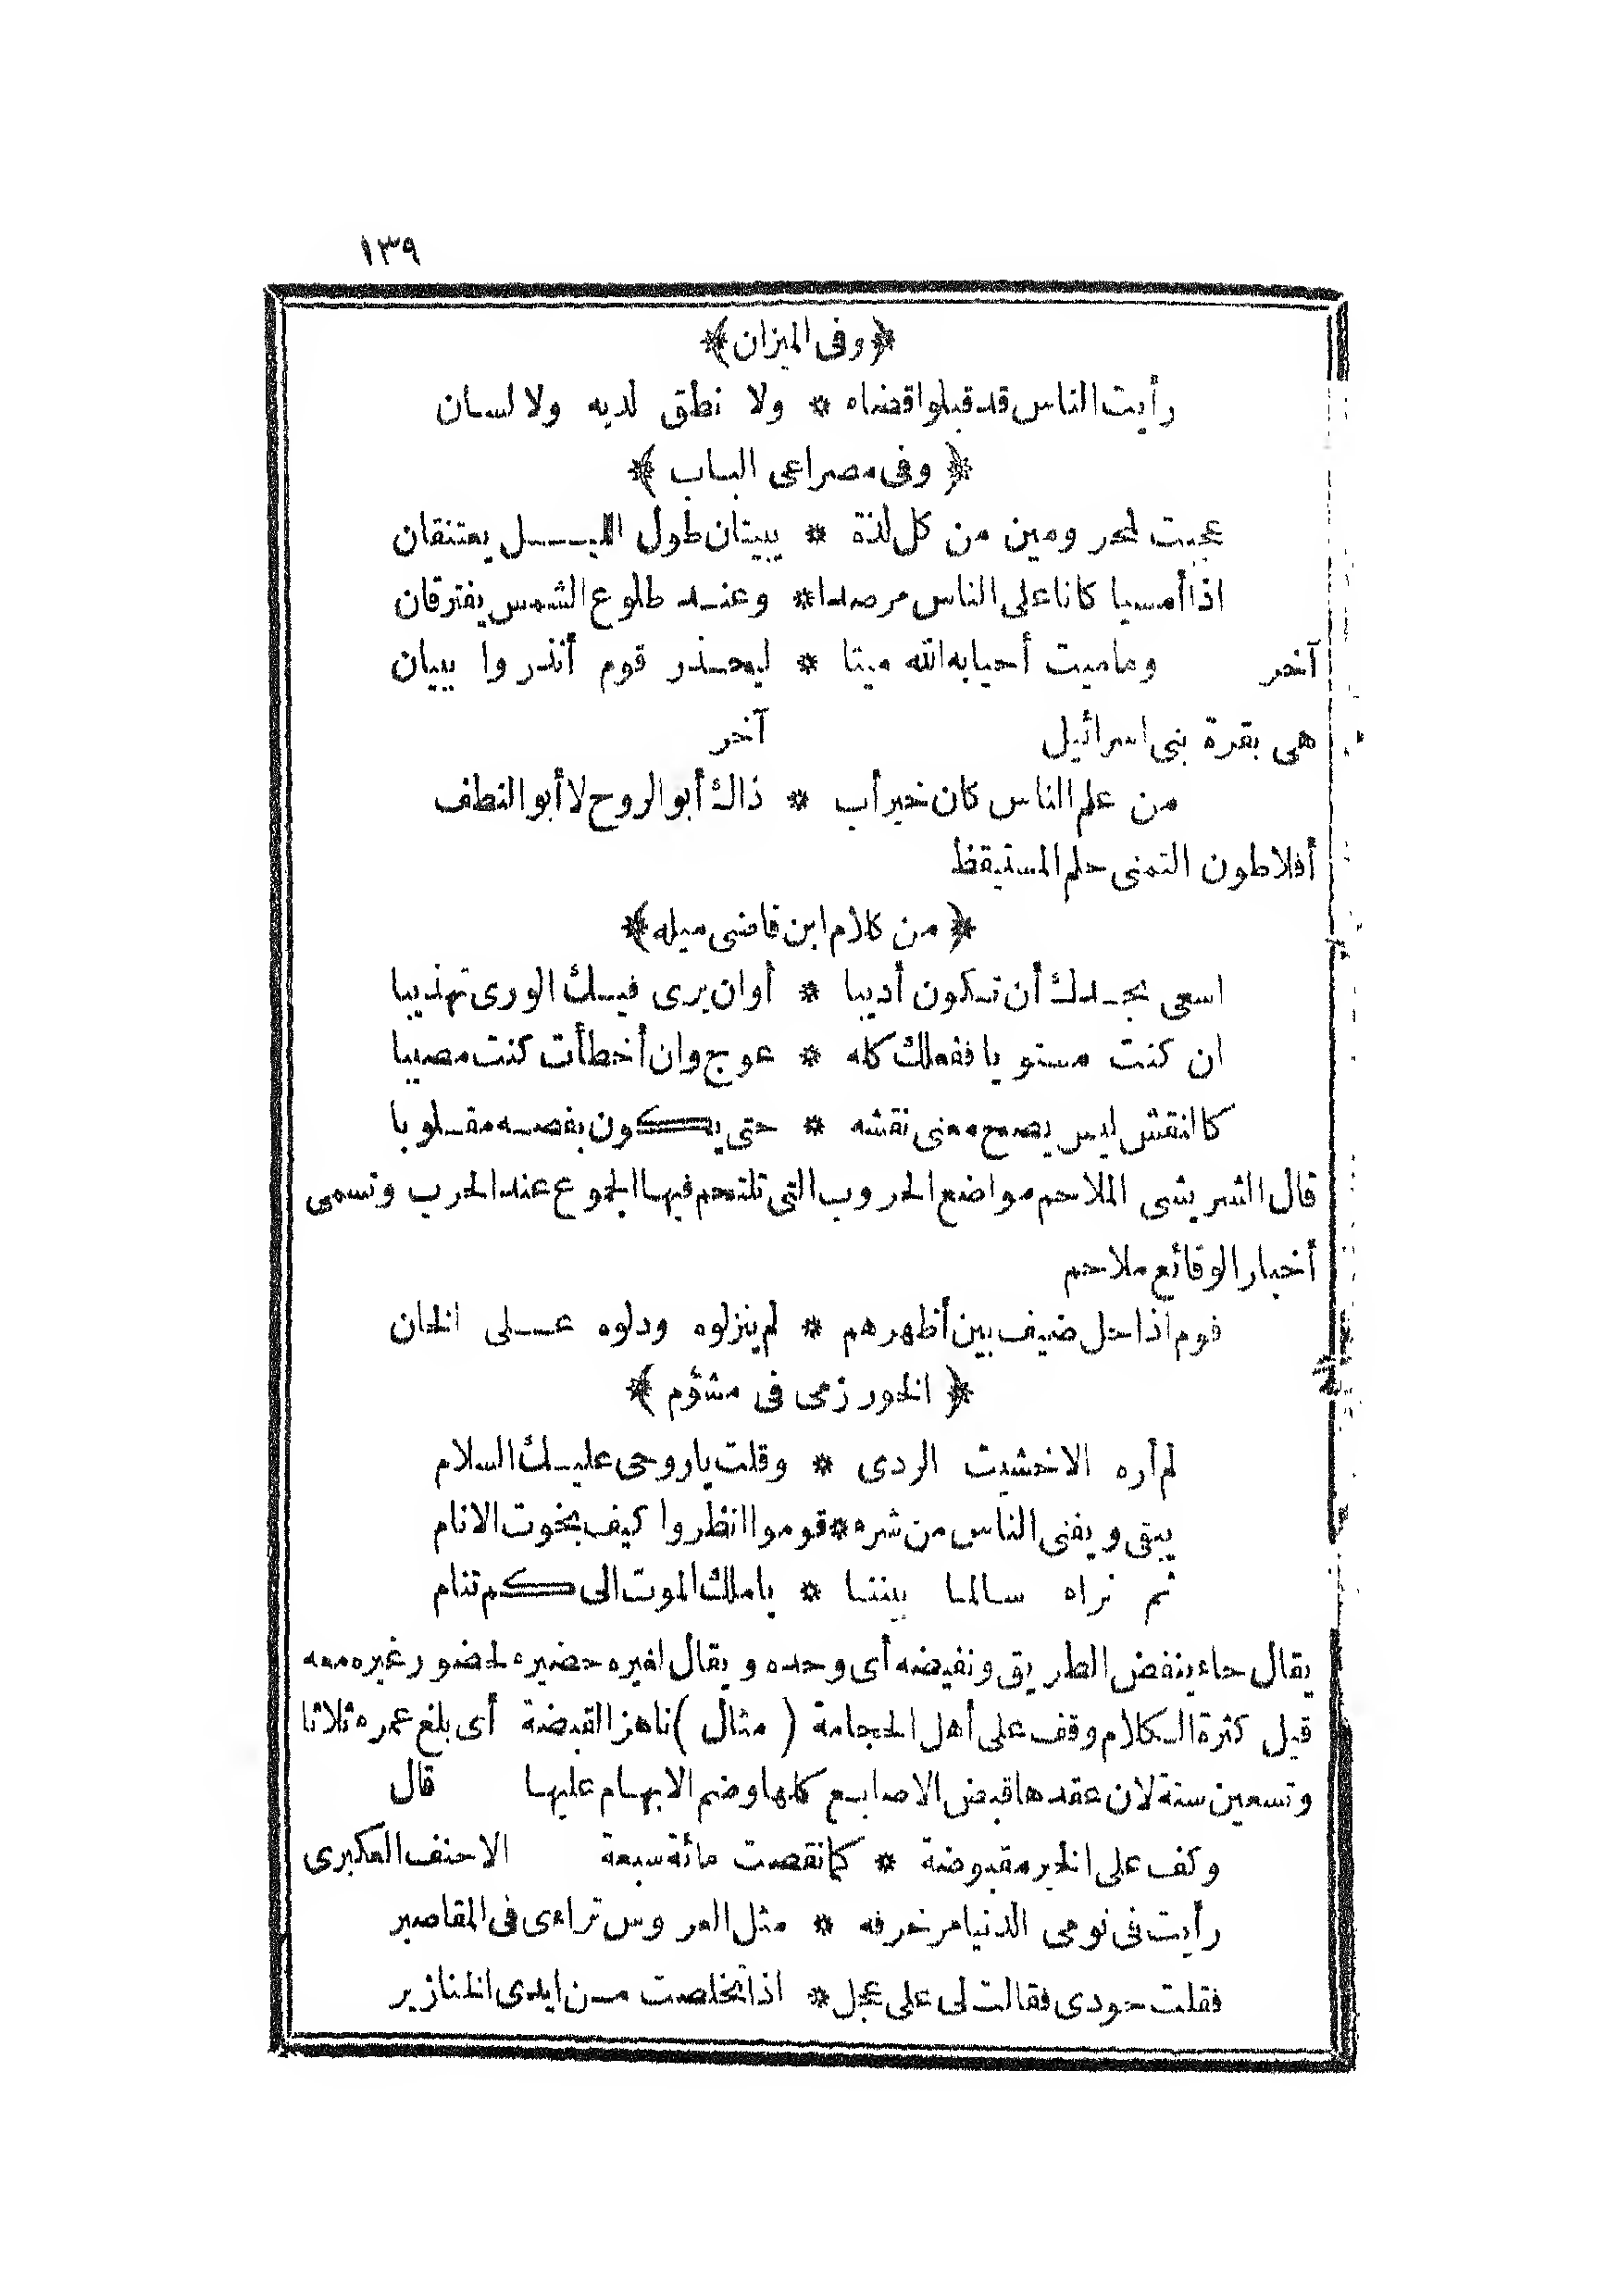 ١٣٩
﴿وفى الميزان﴾
رأيت الناس قد قبلوا قضاه * ولا نطق لديه ولا لسان
﴿ وفى مصراعى الباب ﴾
عجبت لمحرومين من كل لذة * يبيتان طول الليل يعتنقان
اذا أمسيا كانا على الناس مرصدا * وعند طلوع الشمس يفترقان
آخر وماميت أحيا به الله ميتا * ليحذر قوم أنذروا ببيان
هى بقرة بنى اسرائيل آخر
من علم الناس كان خير أب * ذاك أبو الروح لا أبو النطف
أفلاطون التمنى حلم المستيقظ
﴿ من كلام ابن قاضى ميله ﴾
اسعى بجدك أن تكون أديبا * أو ان يرى فيك الورى تهذيبا
ان كنت مستويا ففعلك كله * عوج وان أخطأت كنت مصيبا
كالنقش ليس يصح معنى نقشه * حتى يكون بفصه مقلوبا
قال الشريشى الملاحم مواضع الحروب التى تلتحم فيها الجموع عند الحرب وتسمى
أخبار الوقائع ملاحم
قوم اذا حل ضيف بين أظهرهم * لم ينزلوه ودلوه على الخان
﴿ الخورزمى فى مشؤم ﴾
لم أره الا خشيت الردى * وقلت ياروحى عليك السلام
يبقى ويفنى الناس من شره * قوموا انظروا كيف بخوت الانام
ثم نراه سالما بيننا * ياملك الموت الى كم تنام
يقال جاء ينفض الطريق ونفيضه أى وحده ويقال لغيره حضيره لحضور غيره معه
قيل كثرة الكلام وقف على أهل الحجامة ( مثال ) ناهز القبضة أى بلغ عمره ثلاثا
وتسعين سنة لان عقدها قبض الاصابع كلها وضم الابهام عليها قال
وكف على الخير مقبوضة * كما نقصت مائة سبعة الاحنف العكبرى
رأيت فى نومى الدنيا مزخرفه * مثل العروس تراءى فى المقاصير
فقلت جودى فقالت لى على عجل * اذا تخلصت من ايدى الخنازير